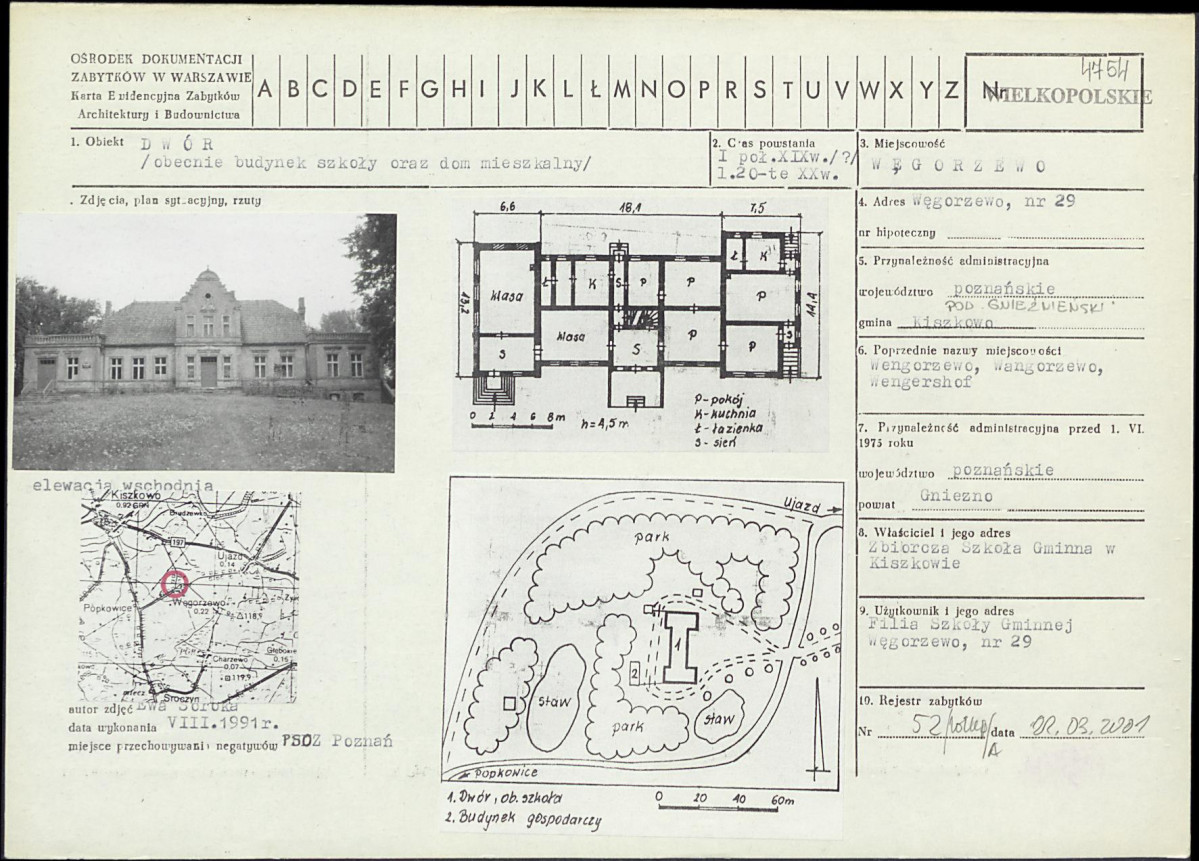 OŚRODEK DOKUMENTACJI
ZABYTKÓW W WARSZAWIE
Karta Ewidencyjna Zabytków
Architektury i Budownictwa
A B C D E F G H I J K L Ł M N O P R S T U V W X Y Z
Nr 4754
WIELKOPOLSKIE
1. Obiekt D W Ó R
/obecnie budynek szkoły oraz dom mieszkalny/
2. Czas powstania
I poł.XIXw./?/
1.20-te XXw.
3. Miejscowość
W Ę G O R Z E W O
. Zdjęcia, plan sytuacyjny, rzuty
4. Adres Węgorzewo, nr 29
nr hipoteczny
5. Przynależność administracyjna
województwo poznańskie
POD. GNIEŹNIEŃSKI
gmina Kiszkowo
6. Poprzednie nazwy miejscowości
Wengorzewo, Wangorzewo,
Wengershof
7. Przynależność administracyjna przed 1. VI.
1975 roku
województwo poznańskie
powiat Gniezno
8. Właściciel i jego adres
Zbiorcza Szkoła Gminna w
Kiszkowie
9. Użytkownik i jego adres
Filia Szkoły Gminnej
Węgorzewo, nr 29
10. Rejestr zabytków
Nr 52/ /A data 22.03.2001
elewacja wschodnia
6,6 18,1 7,5
13,2
14,4
klasa
Ł K S P P
Ł K
P
klasa
S
S
P
P
S
0 2 4 6 8m
h=4,5m
P-pokój
K-kuchnia
Ł-łazienka
S-sień
Kiszkowo
197
Ujazd
0.14
Popkowice
Węgorzewo
0.22
118,9
Charzewo
0.07
119,9
0.15
Sroczyn
autor zdjęć Ewa Soroka
data wykonania VIII.1991r.
miejsce przechowywania negatywów PSOZ Poznań
Ujazd
park
1
2
staw
park
staw
Popkowice
1. Dwór, ob. szkoła
2. Budynek gospodarczy
0 20 40 60m